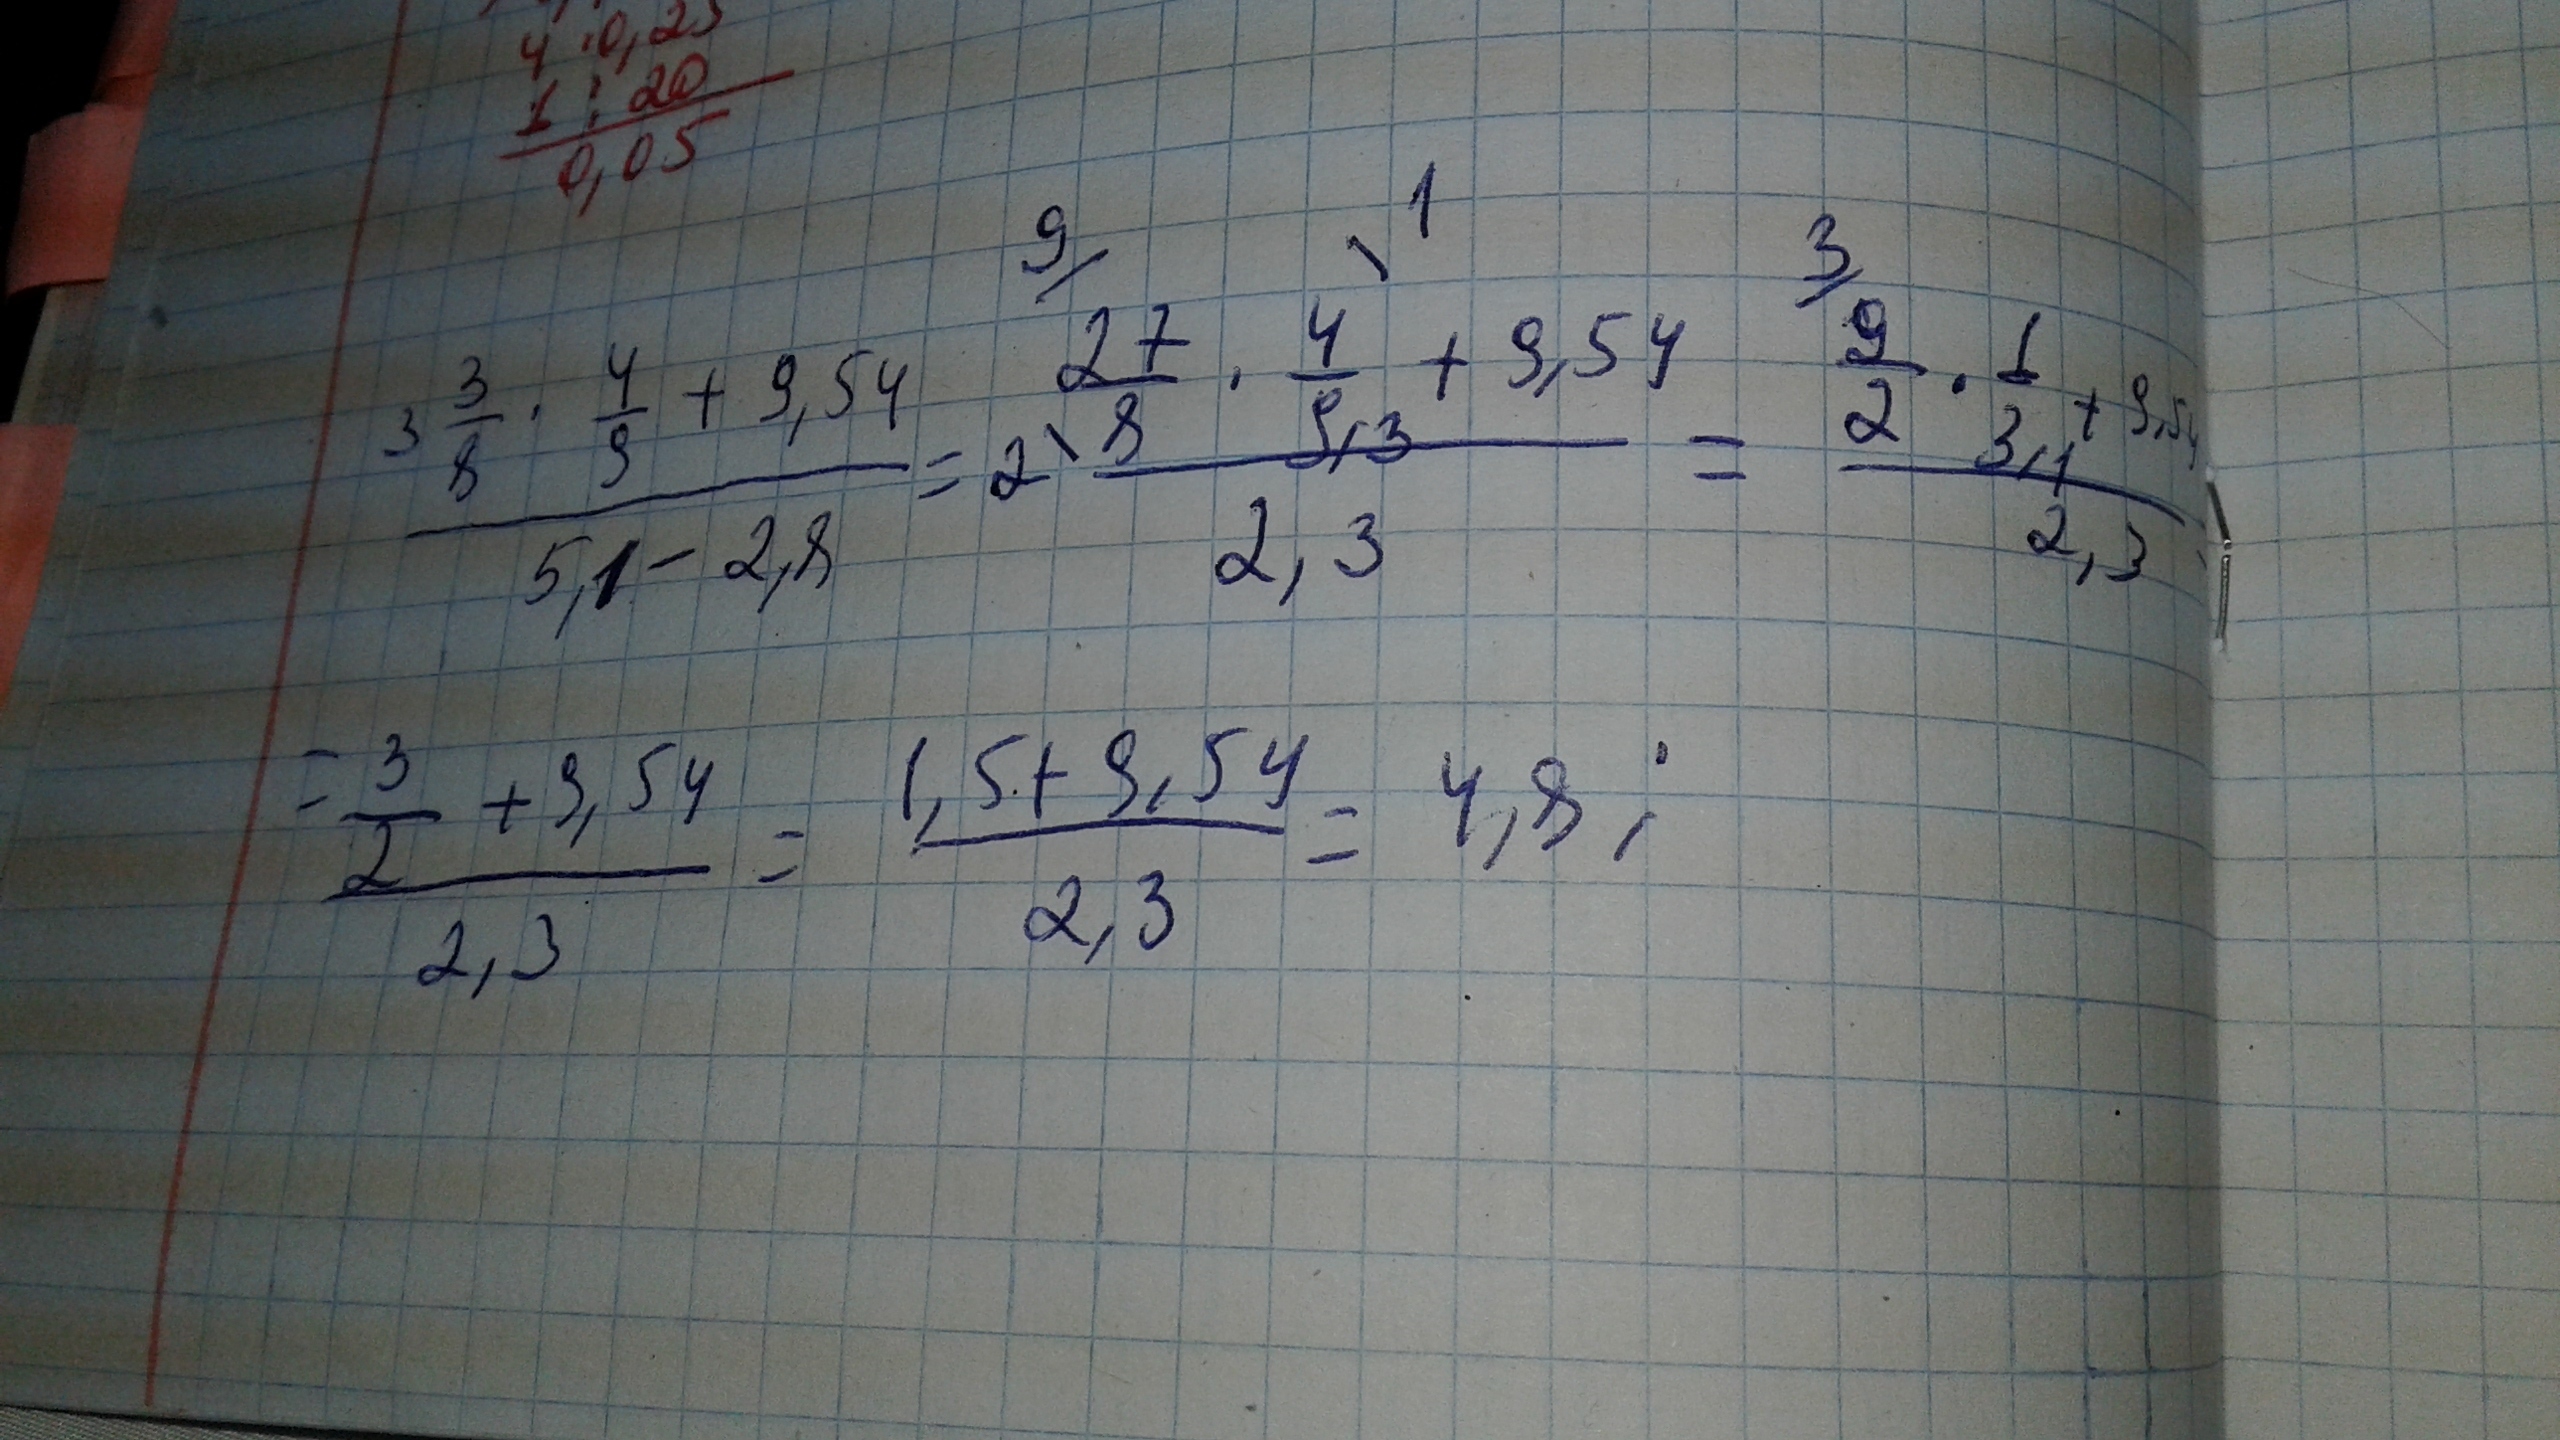 4 : 0,25
1 : 20
0,05
3 3/8 · 4/9 + 9,54 / 5,1 - 2,8 = 9/ 27/8 2\ · 4/9,3 \1 + 9,54 / 2,3 = 3/ 9/2 · 1/3,1 + 9,54 / 2,3
= 3/2 + 9,54 / 2,3 = 1,5 + 9,54 / 2,3 = 4,8 ;